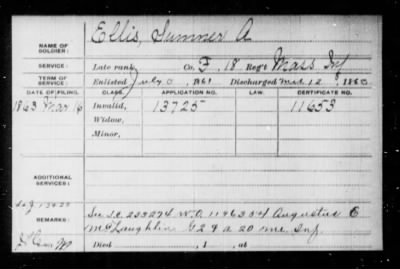 NAME OF SOLDIER: Ellis, Sumner A
SERVICE: Late rank, Co. F, 18 Reg't Mass Inf
TERM OF SERVICE: Enlisted July 1861 Discharged Mch 12, 1863
DATE OF FILING. CLASS. APPLICATION NO. LAW. CERTIFICATE NO.
1863 Mar 16 Invalid, 13725 11653
Widow,
Minor,
ADDITIONAL SERVICES:
REMARKS: See I.C. 233274 W.O. 1196354 Augustus E
McLaughlin G 2 & a 20 me Inf
Died , 1 , at